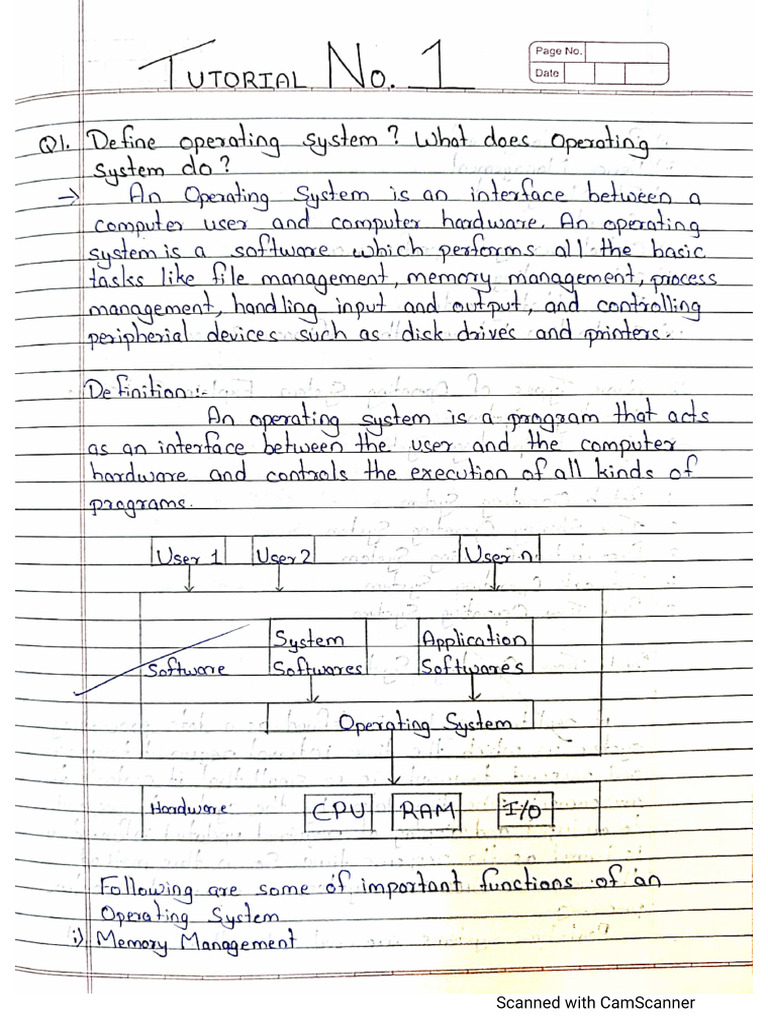 TUTORIAL No. 1
Page No.
Date
Q1. Define operating system? What does operating
system do?
→ An Operating System is an interface between a
computer user and computer hardware. An operating
system is a software which performs all the basic
tasks like file management, memory management, process
management, handling input and output, and controlling
peripherial devices such as disk drives and printers.
Definition:-
An operating system is a program that acts
as an interface between the user and the computer
hardware and controls the execution of all kinds of
programs.
User 1 User 2 User n
System Application
Software Softwares Softwares
Operating System
Hardware CPU RAM I/O
Following are some of important functions of an
Operating System
i) Memory Management
Scanned with CamScanner